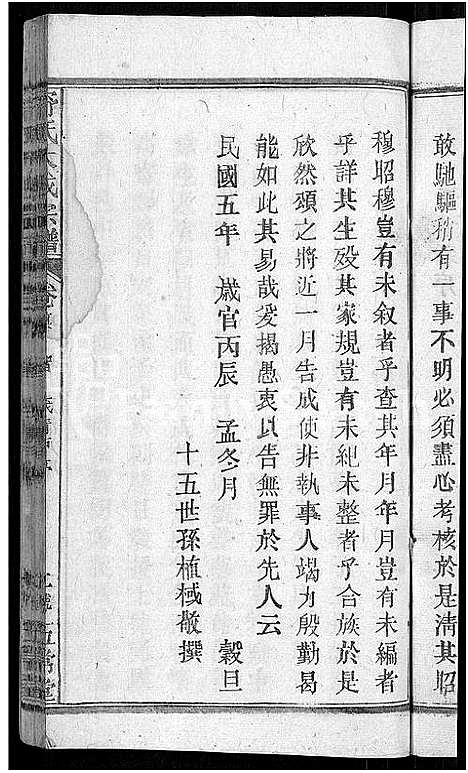 敢馳驅稍有一事不明必須盡心考核於是淸其昭
穆昭穆豈有未叙者乎查其年月年月豈有未編者
乎詳其生殁其家規豈有未紀未整者乎合族於是
欣然頌之將近一月告成使非執事人竭力殷勤曷
能如此其易哉爰揭愚衷以告無罪於先人云
民國五年 歲官丙辰 孟冬月 穀旦
十五世孫植棫敬撰
氏大成宗譜